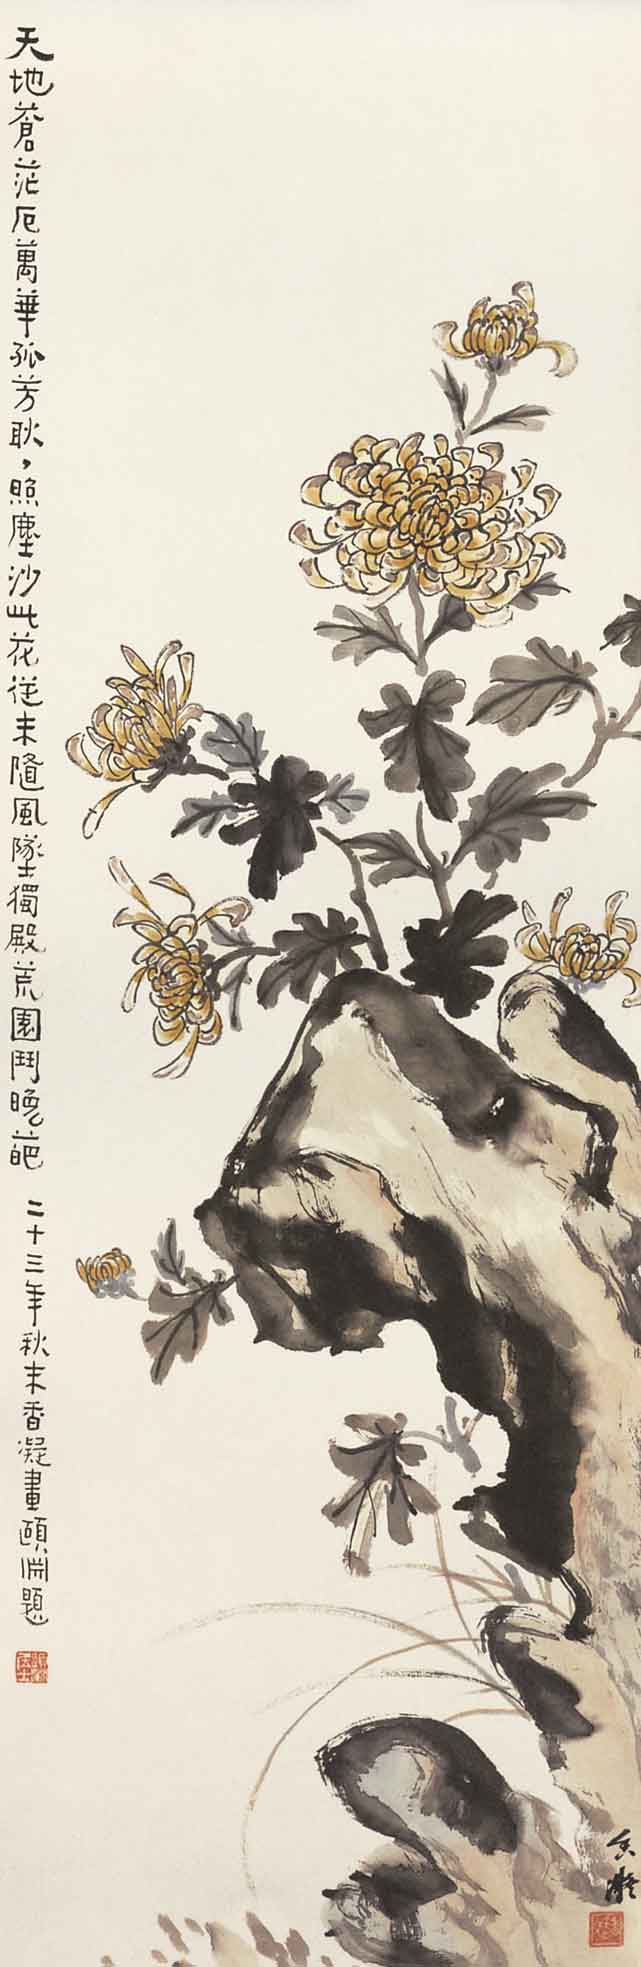 天地蒼茫厄萬華孤芳耿〻照塵沙此花從未隨風墜獨殿荒園鬥晚葩
二十三年秋末香凝畫頤淵題
香凝